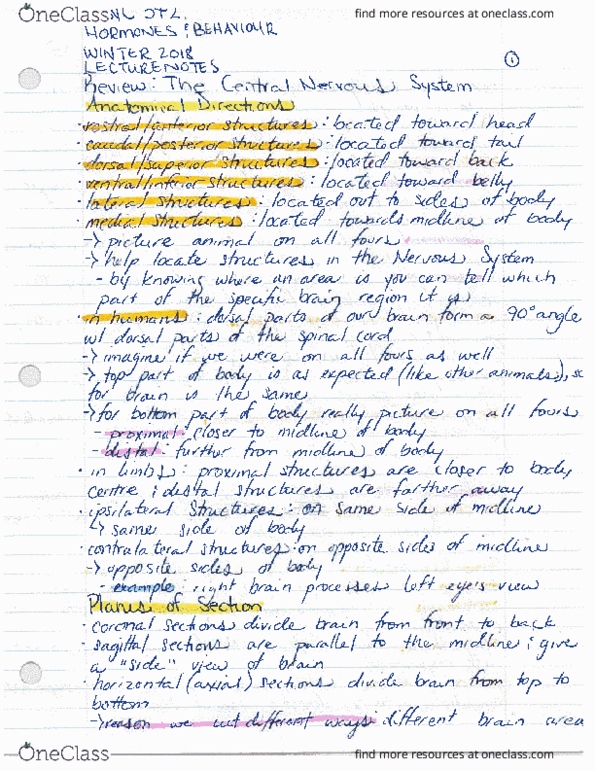 OneClass
find more resources at oneclass.com
HORMONES & BEHAVIOUR
WINTER 2018
LECTURE NOTES
①
Review: The Central Nervous System
Anatomical Directions
· rostral/anterior structures: located toward head
· caudal/posterior structures: located toward tail
· dorsal/superior structures: located toward back
· ventral/inferior structures: located toward belly
· lateral structures: located out to sides of body
· medial structures: located towards midline of body
-> picture animal on all fours
-> help locate structures in the Nervous System
- by knowing where an area is you can tell which
part of the specific brain region it is
· in humans: dorsal parts of our brain form a 90° angle
w/ dorsal parts of the spinal cord
-> imagine if we were on all fours as well
-> top part of body is as expected (like other animals), so
for brain is the same
-> for bottom part of body really picture on all fours
- proximal: closer to midline of body
- distal: further from midline of body
· in limbs: proximal structures are closer to body
centre; distal structures are farther away
· ipsilateral structures: on same side of midline
-> same side of body
· contralateral structures: on opposite sides of midline
-> opposite sides of body
- example: right brain processes left eye's view
Planes of Section
· coronal sections divide brain from front to back
· sagittal sections are parallel to the midline; give
a "side" view of brain
· horizontal (axial) sections divide brain from top to
bottom
-> reason we cut different ways: different brain area
OneClass
find more resources at oneclass.com